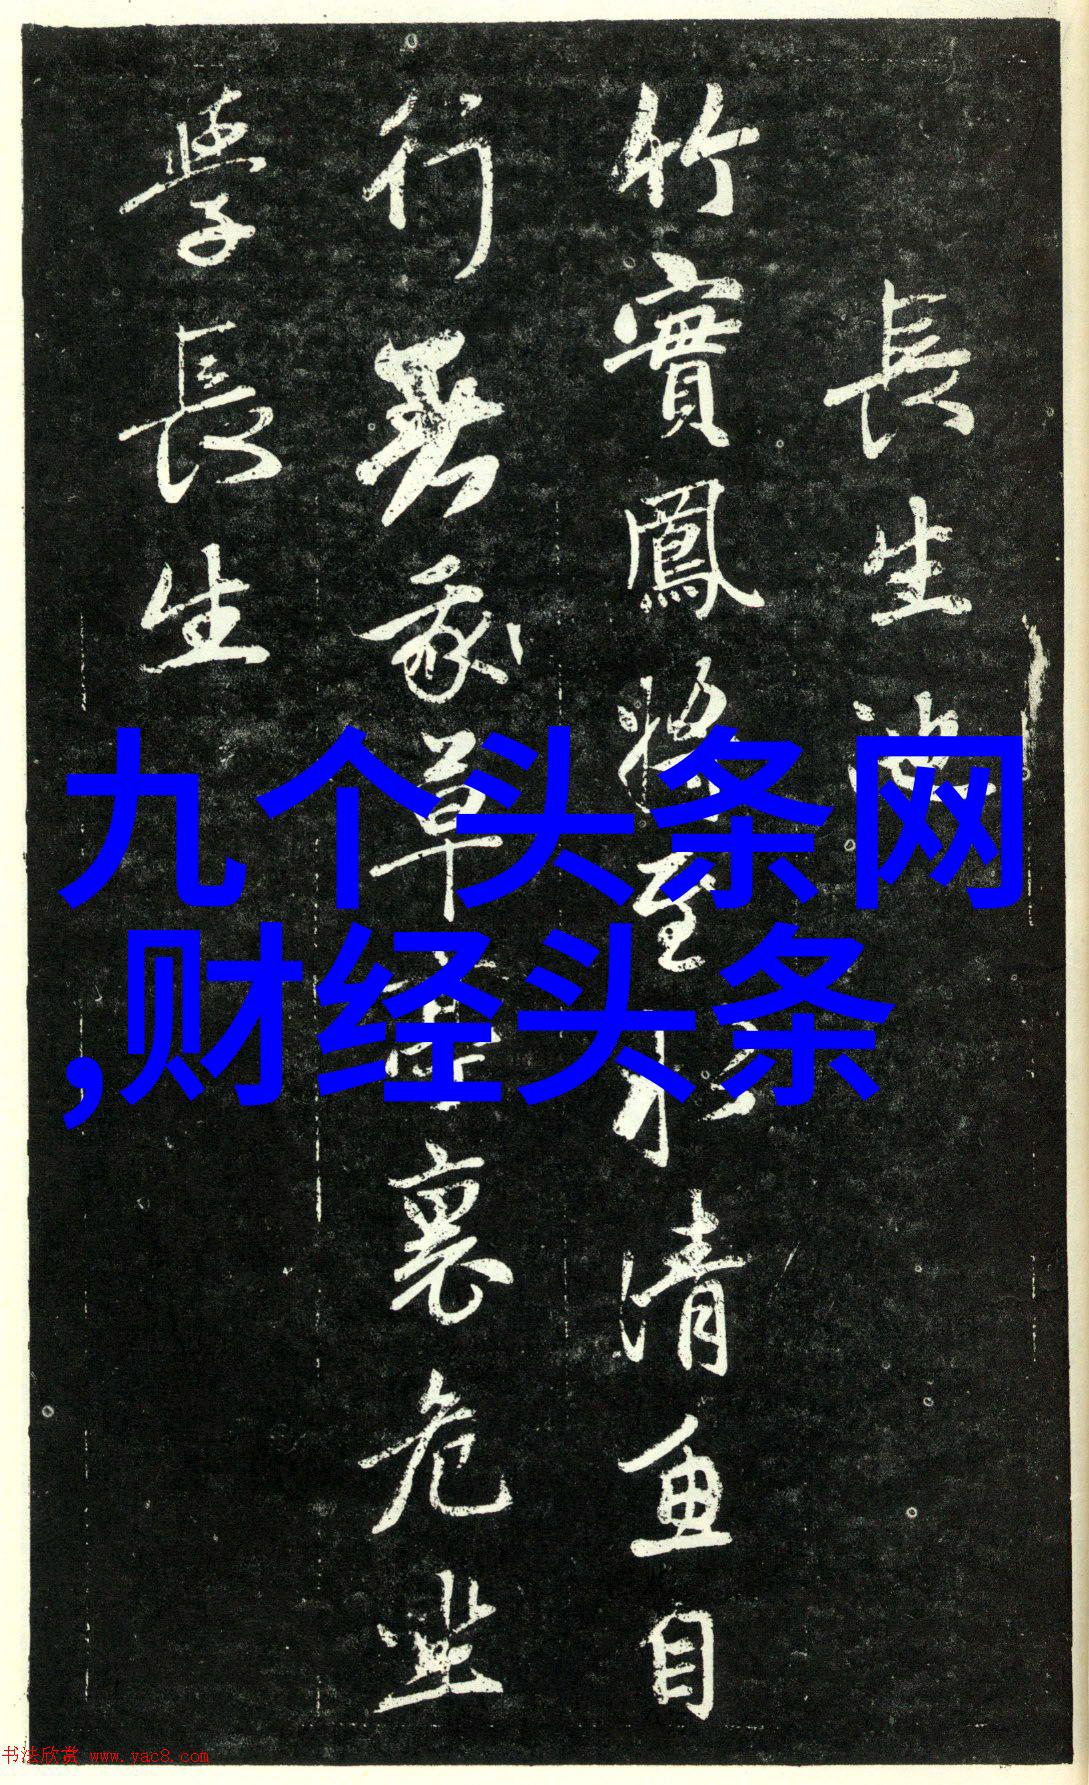 長生池
竹實鳳將至水清魚自
行草裏危坐
學長生
九个头条网
,财经头条
书法欣赏 www.yac8.com